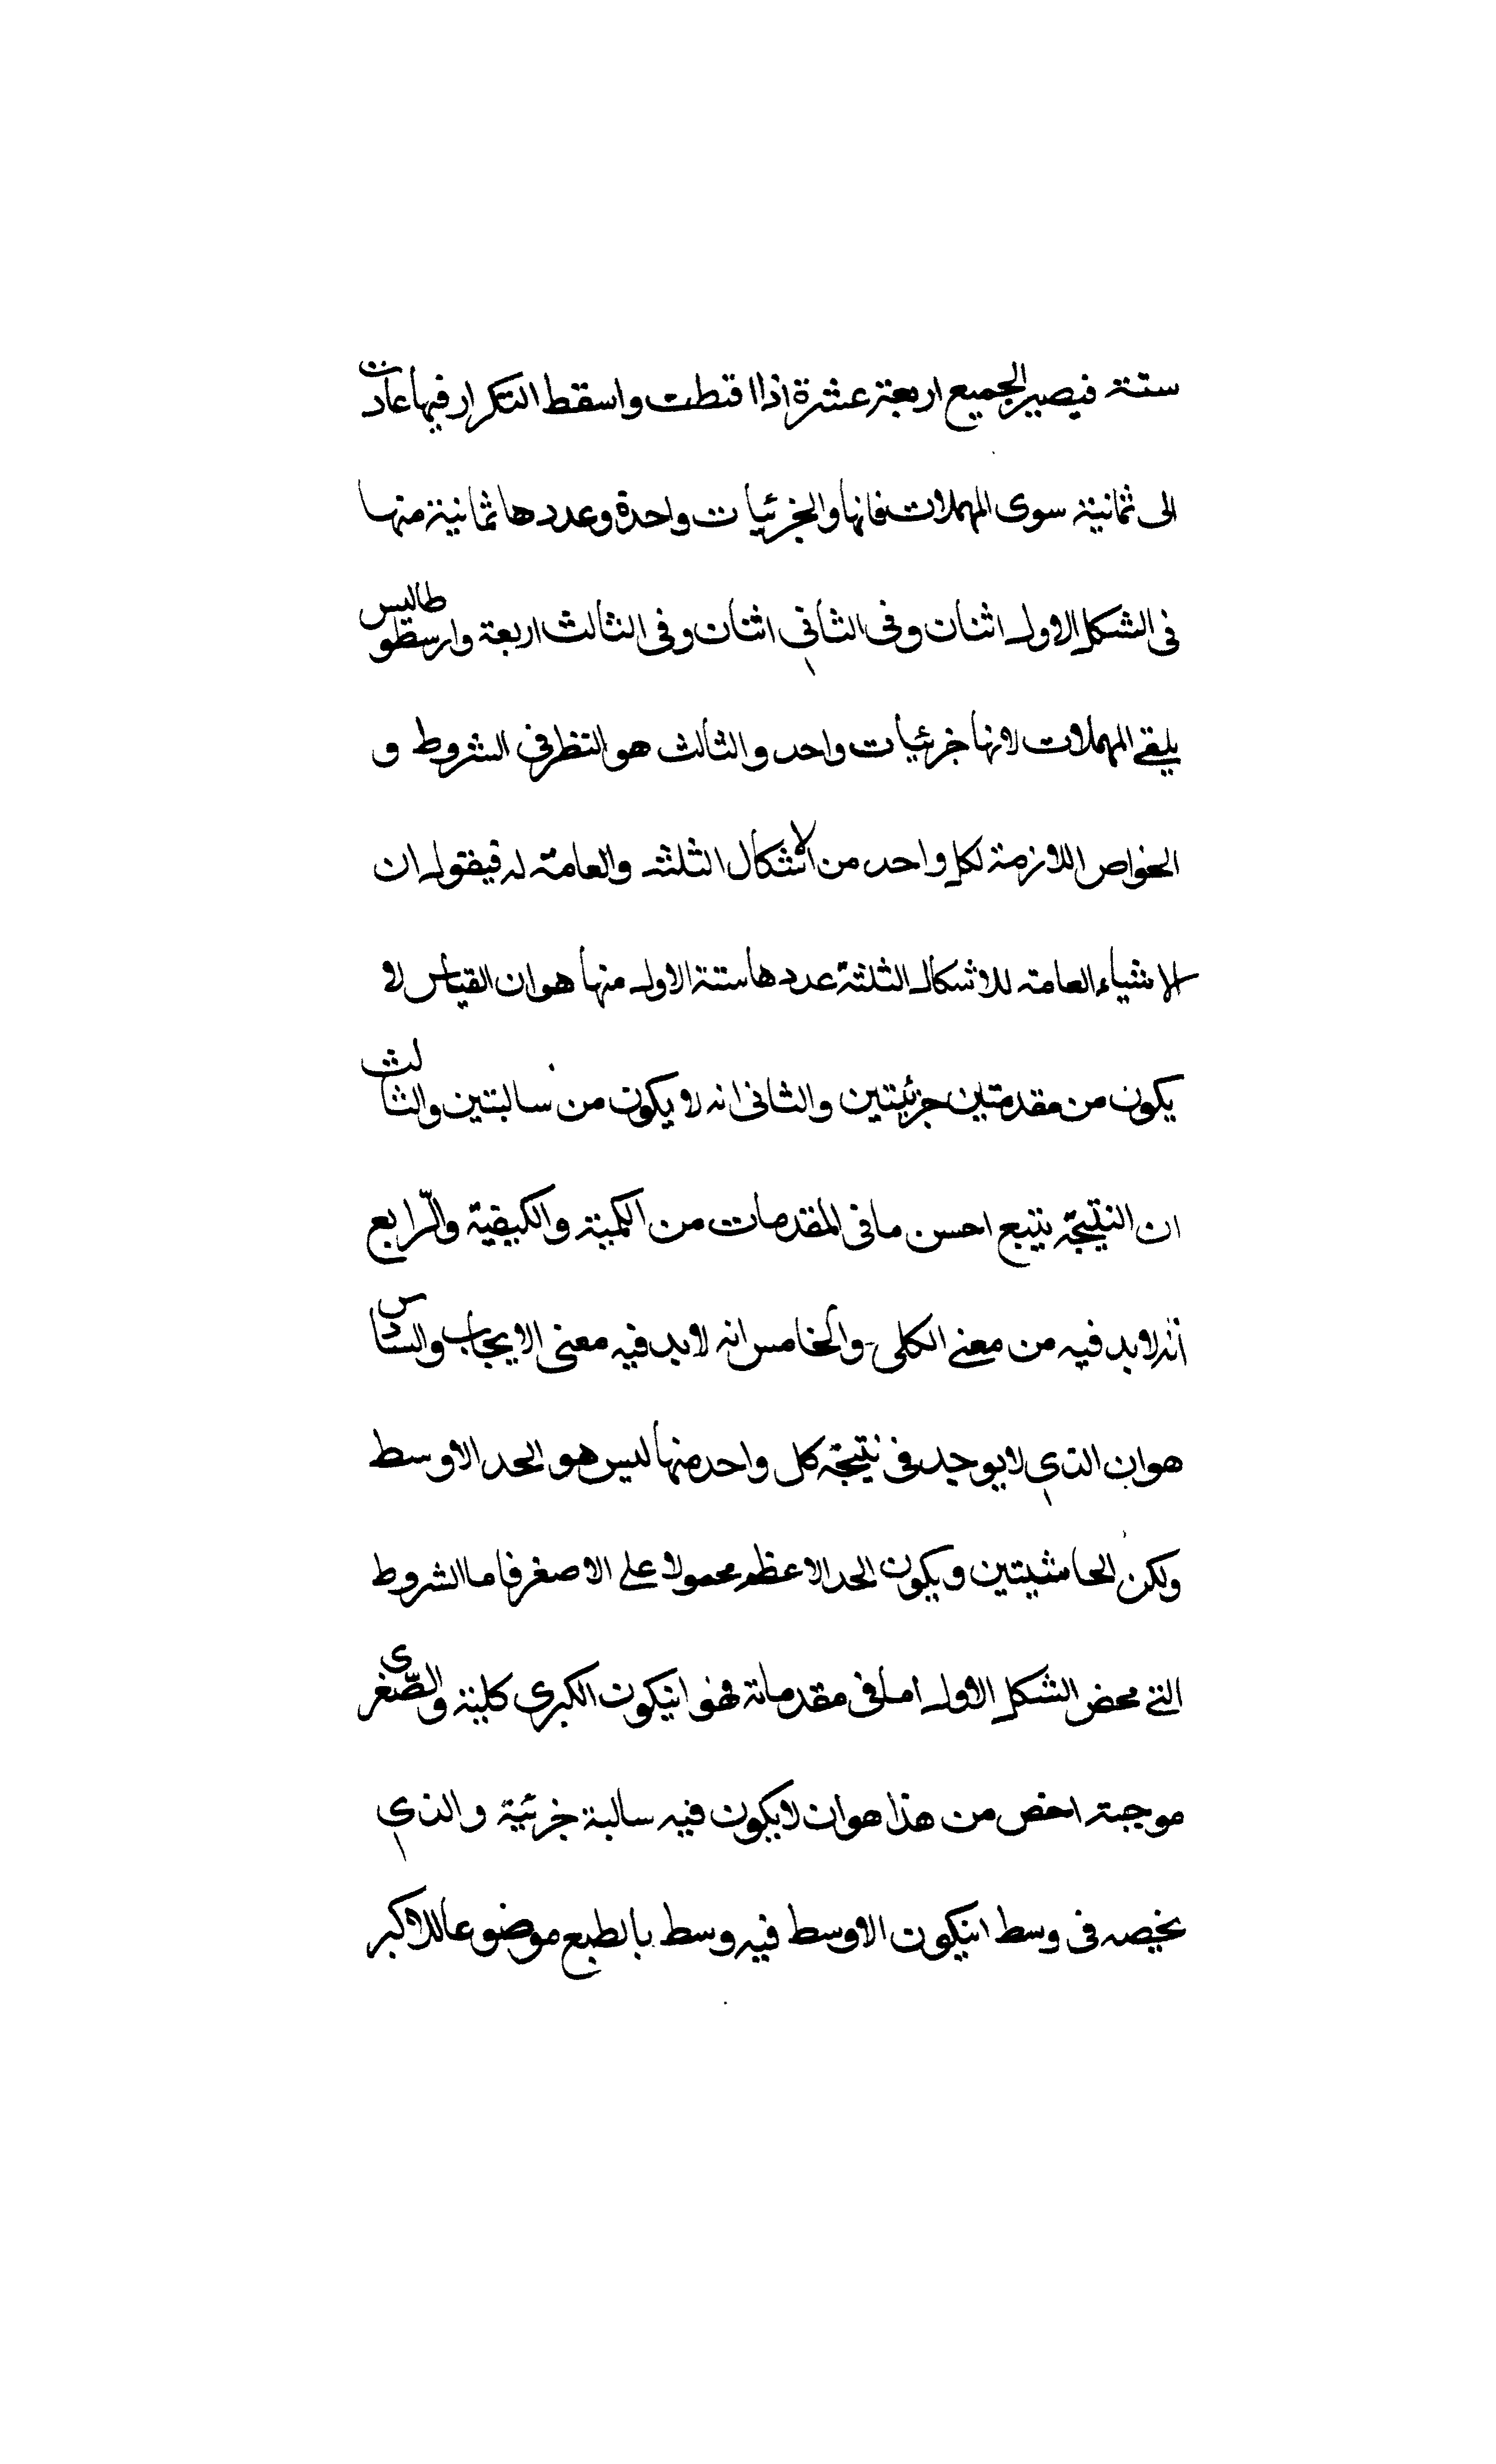 ستة فيصير الجميع اربعة عشرة اذا اقتطت واسقط التكرار فيها عادت
الى ثمانية سوى المهملات فانها والخرئيات واحدة وعددها ثمانية منها
فى الشكل الاول اثنان وفى الثانى اثنان وفى الثالث اربعة وارسطوطاليس
يلقے المهملات لانها خرئيات واحد والثالث هو النظر فى الشروط و
الخواص اللازمة لكل واحد من الاشكال الثلثة والعامة له فيقول ان
الاشياء العامة للاشكال الثلثة عددها ستة الاول منها هو ان القياس لا
يكون من مقدمتين جزئيتين والثانى انه لا يكون من سالبتين والثالث
ان النتيجة يتبع احسن ما فى المقدمات من الكمية والكيفية والرّابع
انه لا بد فيه من معنے الكلى والخامس انه لا بد فيه معنى الايجاب والسادس
هو ان الذي لا يوجد فى نتيجة كل واحد منها ليس هو الحد الاوسط
ولكن الحاشيتين ويكون الحد الاعظم محمولا علے الاصغر فاما الشروط
التے محض الشكل الاول اما فى مقدماته فهو انيكون الكبرى كلية والصّغرى
موجبة اخص من هذا هو ان لا يكون فيه سالبة خرئية والذي
يخصه فى وسط انيكون الاوسط فيه وسط بالطبع موضوعا للاكبر